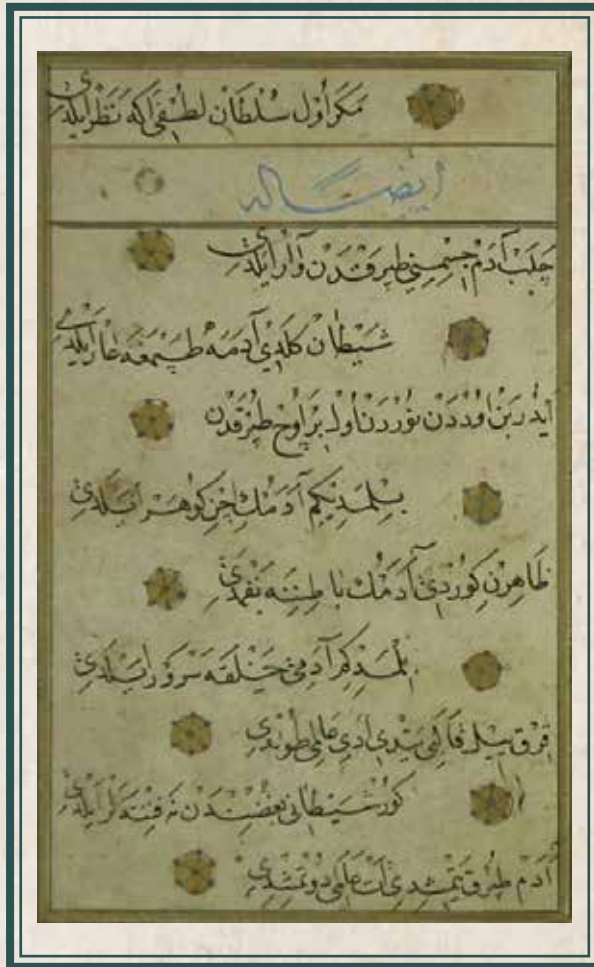 مكر اول سلطان لطفى اكه نظر ايلدى
ايضاله
چلب آدم جسمني طپرقدن وار ايلدى
شيطان كلدي آدمه طپمغه عار ايلدى
ايدر بن اوددن نوردن اول بر اوج طپرقدن
بلمديكم آدمك اچن كوهر ايلدي
ظاهرن كوردي آدمك باطننه بقمدي
بلمدكم آدمي خلقه سرور ايلدي
قرق ييل قالبي يتدي ادي عالمي طوتدي
كور شيطاني بغضندن نه فتنه لر ايلدي
آدم طپرق يتمشدي ات علمي دوتمشدي